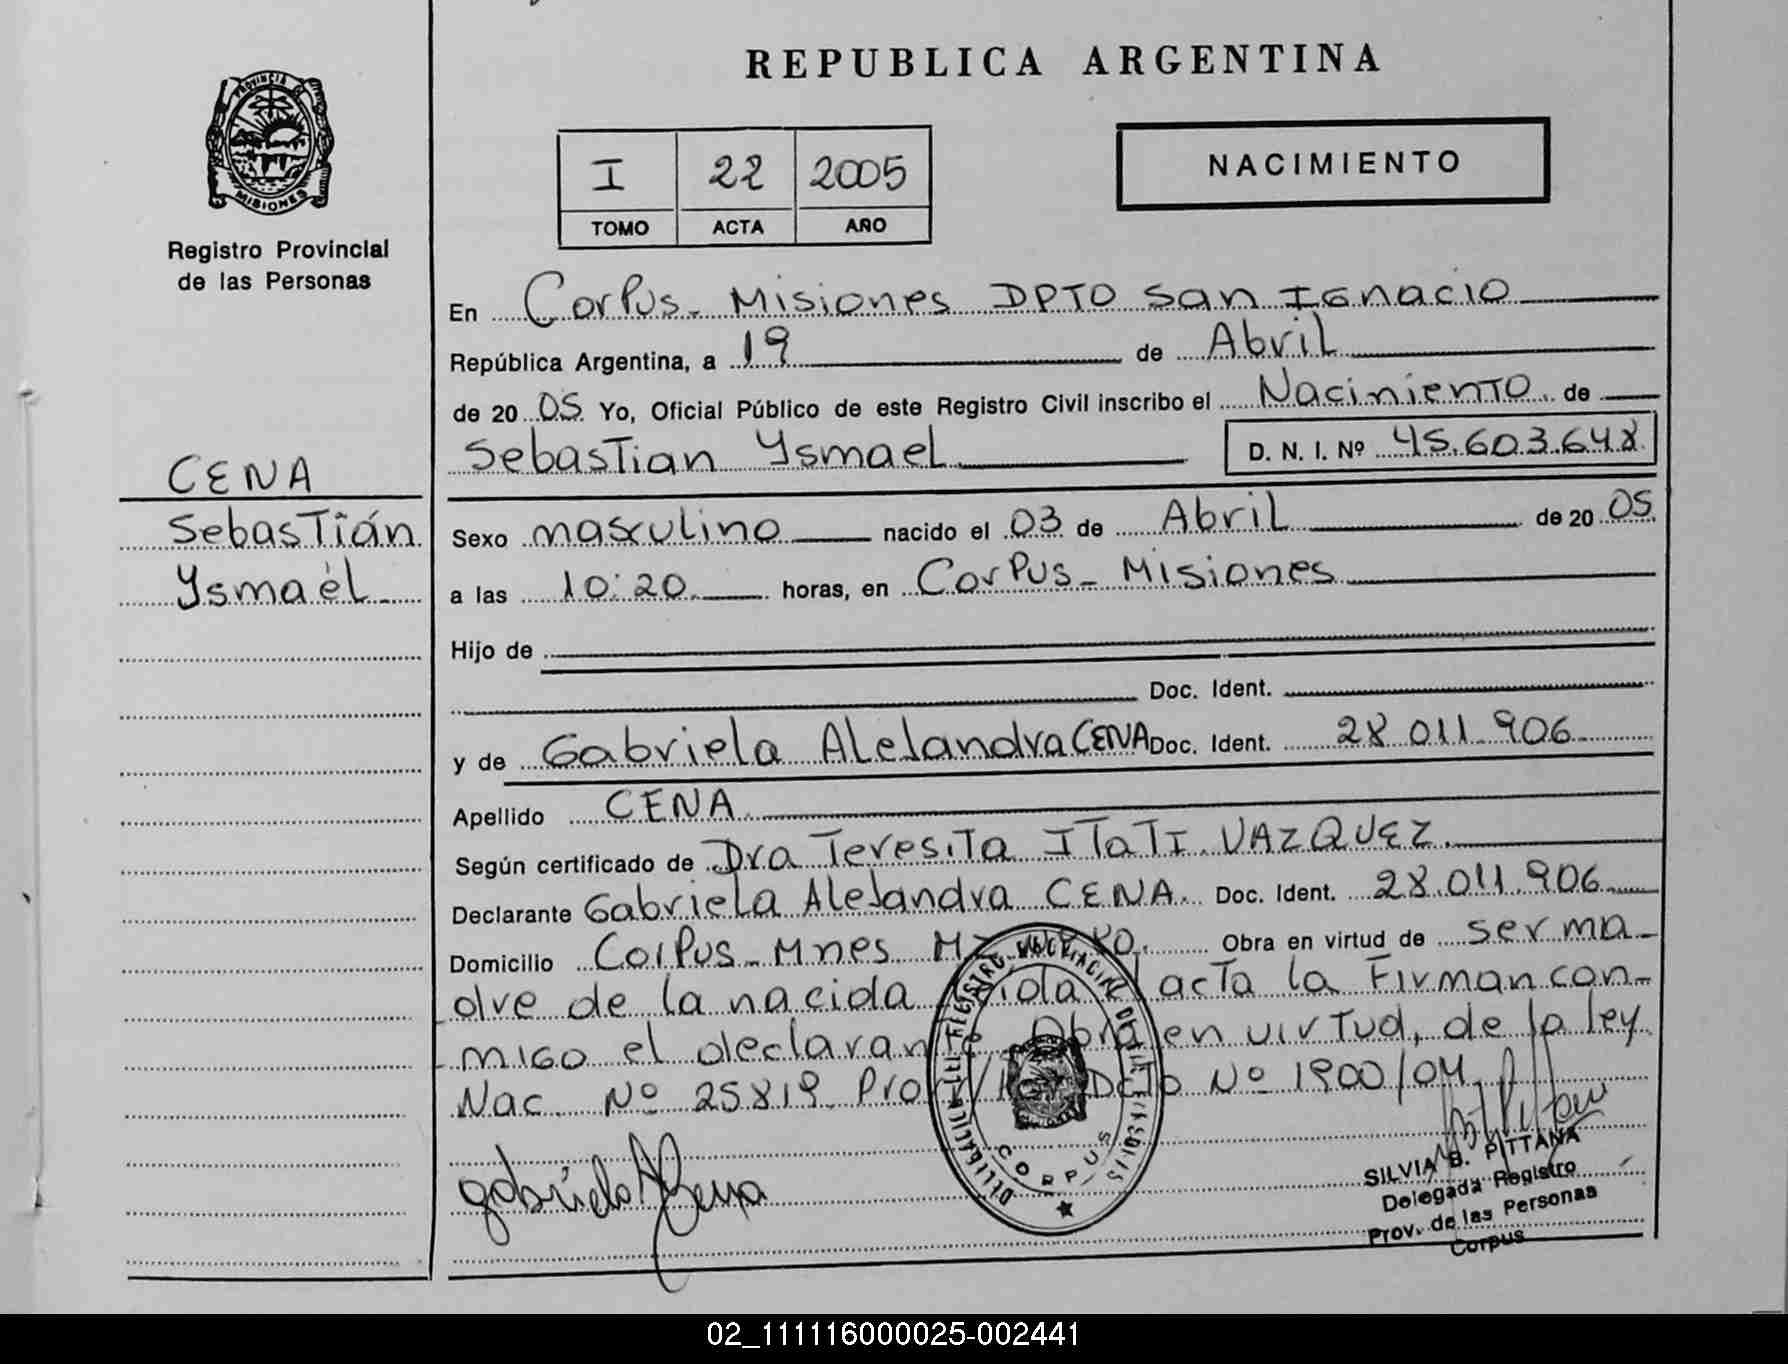 REPUBLICA ARGENTINA
PROVINCIA DE
MISIONES
Registro Provincial
de las Personas
I 22 2005
TOMO ACTA AÑO
NACIMIENTO
CENA
Sebastián
Ysmaél
En Corpus - Misiones DPTO San Ignacio
República Argentina, a 19 de Abril
de 20 05 Yo, Oficial Público de este Registro Civil inscribo el Nacimiento de
Sebastian Ysmael D. N. I. Nº 45.603.648
Sexo masculino nacido el 03 de Abril de 20 05
a las 10:20 horas, en Corpus - Misiones
Hijo de
Doc. Ident.
y de Gabriela Alejandra CENA Doc. Ident. 28 011 906
Apellido CENA
Según certificado de Dra Teresita ITATI VAZQUEZ
Declarante Gabriela Alejandra CENA. Doc. Ident. 28.011.906
Domicilio Corpus - Mnes Obra en virtud de ser ma-
dre de la nacida acta la Firman con-
migo el declarante Obra en virtud, de la ley
Nac. Nº 25819 Dcto Nº 1900/04
gabriela A Cena
CORPUS
SILVIA B. PITTANA
Delegada Registro
Prov. de las Personas
Corpus
02_111116000025-002441